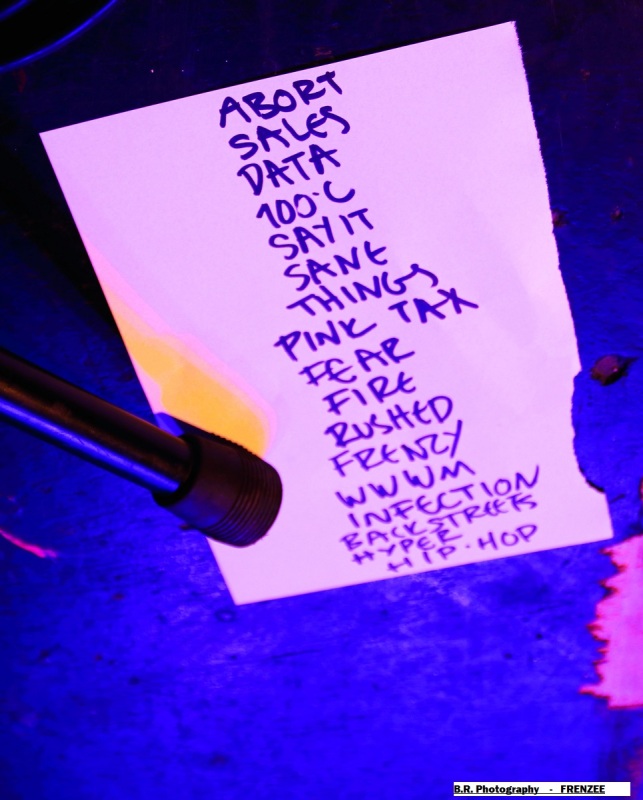 ABORT
SALES
DATA
100°C
SAY IT
SANE
THINGS
PINK TAX
FEAR
FIRE
RUSHED
FRENZY
WWWM
INFECTION
BACKSTREETS
HYPER
HIP-HOP
B.R. Photography - FRENZEE